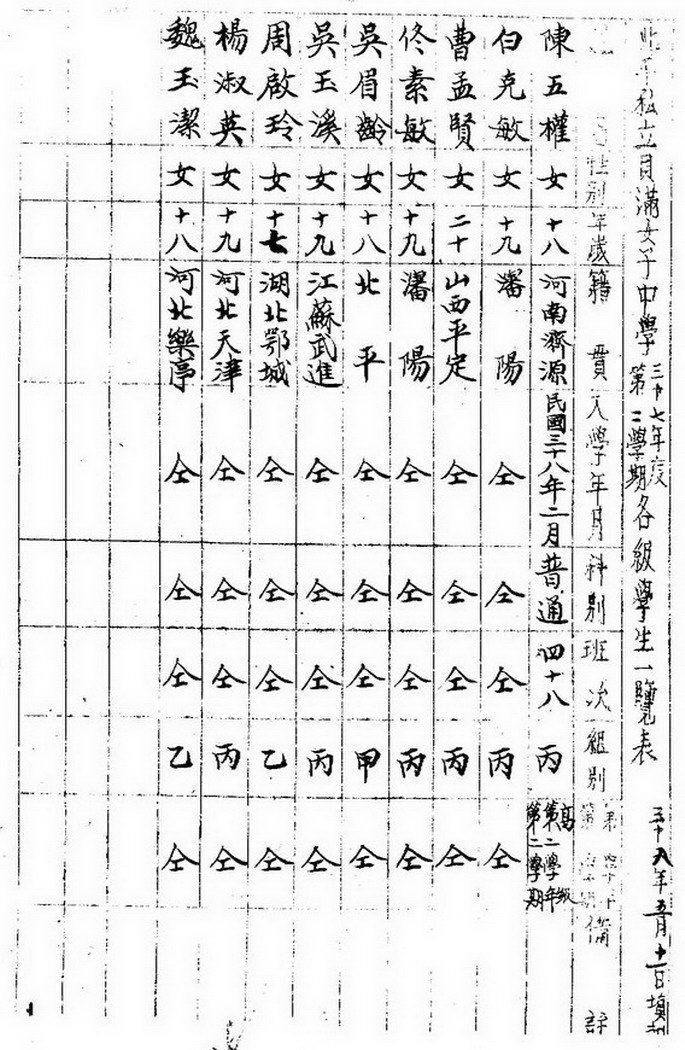 北平私立貝滿女子中學三十七年度第二學期各級學生一覽表 三十八年五月十一日填
性別 年歲 籍貫 入學年月 科別 班次 組別 備註
陳五權 女 十八 河南濟源 民國三十八年二月 普通 四十八 丙 高級第二學年第二學期
白克敏 女 十九 瀋陽 仝 仝 仝 丙 仝
曹孟賢 女 二十 山西平定 仝 仝 仝 丙 仝
佟素敏 女 十九 瀋陽 仝 仝 仝 丙 仝
吳眉齡 女 十八 北平 仝 仝 仝 甲 仝
吳玉溪 女 十九 江蘇武進 仝 仝 仝 丙 仝
周啟玲 女 十七 湖北鄂城 仝 仝 仝 乙 仝
楊淑英 女 十九 河北天津 仝 仝 仝 丙 仝
魏玉潔 女 十八 河北樂亭 仝 仝 仝 乙 仝